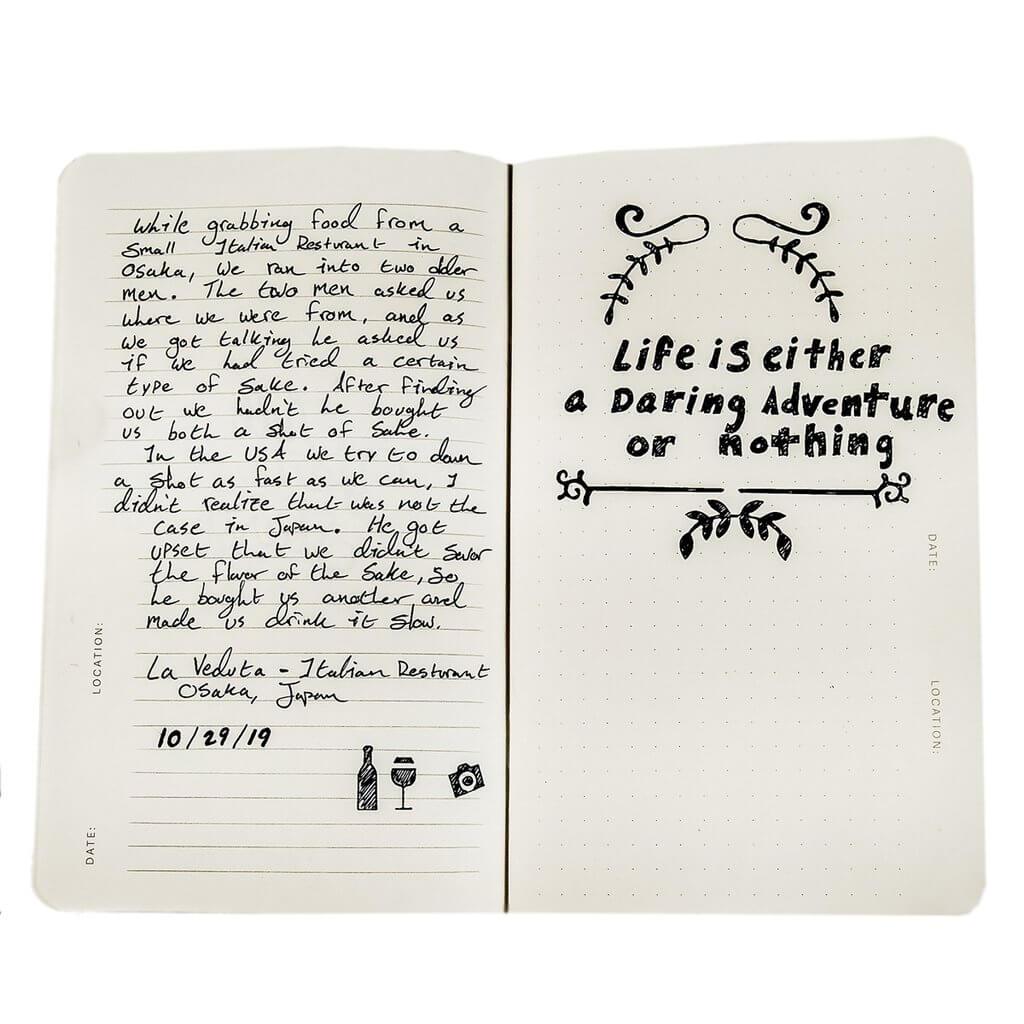 While grabbing food from a
Small Italian Resturant in
Osaka, we ran into two older
men. The two men asked us
where we were from, and as
we got talking he asked us
if we had tried a certain
type of Sake. After finding
out we hadn't he bought
us both a shot of Sake.
In the USA we try to down
a shot as fast as we can, I
didn't realize that was not the
case in Japan. He got
upset that we didn't Savor
the flavor of the Sake, so
he bought us another and
made us drink it slow.
La Veduta - Italian Resturant
Osaka, Japan
10/29/19
LOCATION:
DATE:
Life is either
a Daring Adventure
or nothing
DATE:
LOCATION: